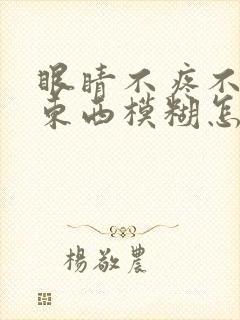 眼睛不疼不
东西模糊怎
楊敬農